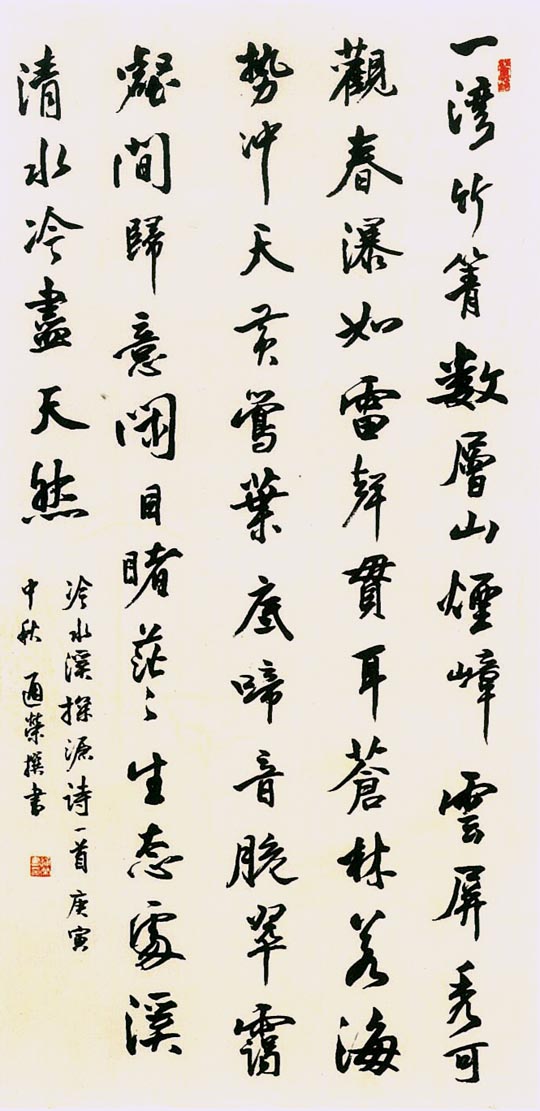 一湾竹箐数層山煙嶂雲屏秀可
觀春瀑如雷聲貫耳蒼林若海
势冲天黄鶯葉底啼音脆翠靄
壑間歸意闲目睹茫々生态處溪
清水冷盡天然
冷水溪探源诗一首庚寅
中秋 通榮撰書